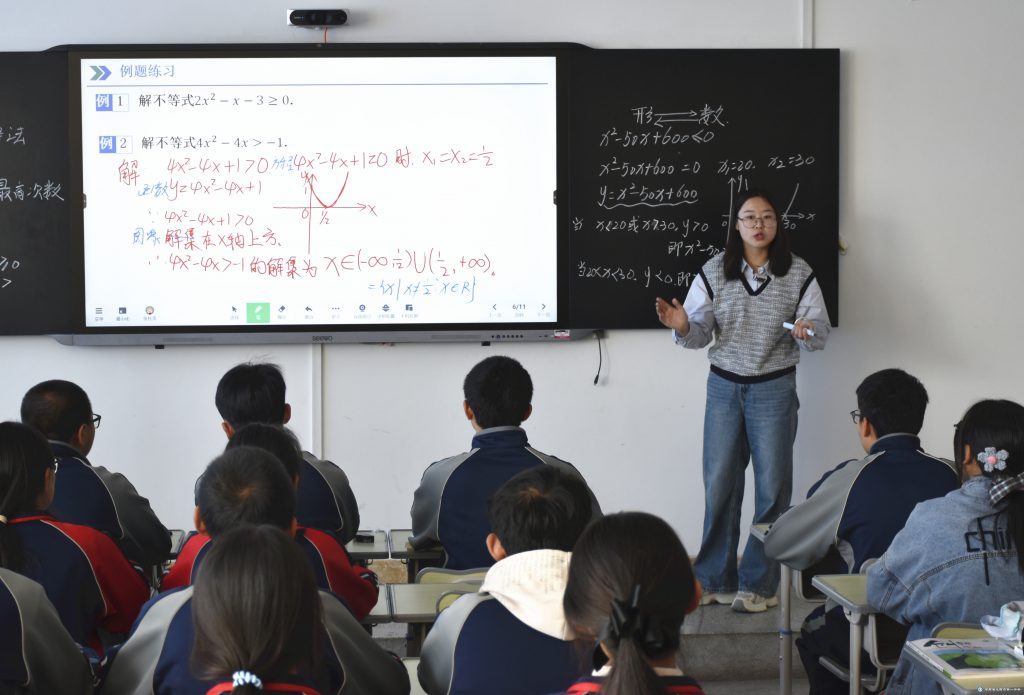 例题练习
例 1 解不等式2x² − x − 3 ≥ 0.
例 2 解不等式4x² − 4x > −1.
解 4x²-4x+1>0 方程4x²-4x+1=0 时. x₁=x₂=½
函数y=4x²-4x+1
∵ 4x²-4x+1>0
图象 解集在x轴上方.
∴ 4x²-4x>-1 的解集为 x∈(-∞,½)∪(½,+∞).
={x|x≠½,x∈R}
0 ½ x
6/11
seewo
法
最高次数
≥0
>
形 数
x²-50x+600≤0
x²-50x+600=0 x₁=20. x₂=30
y=x²-50x+600
y
0 30 x
当 x<20或x>30, y>0
即 x²-50
当20<x<30. y<0. 即